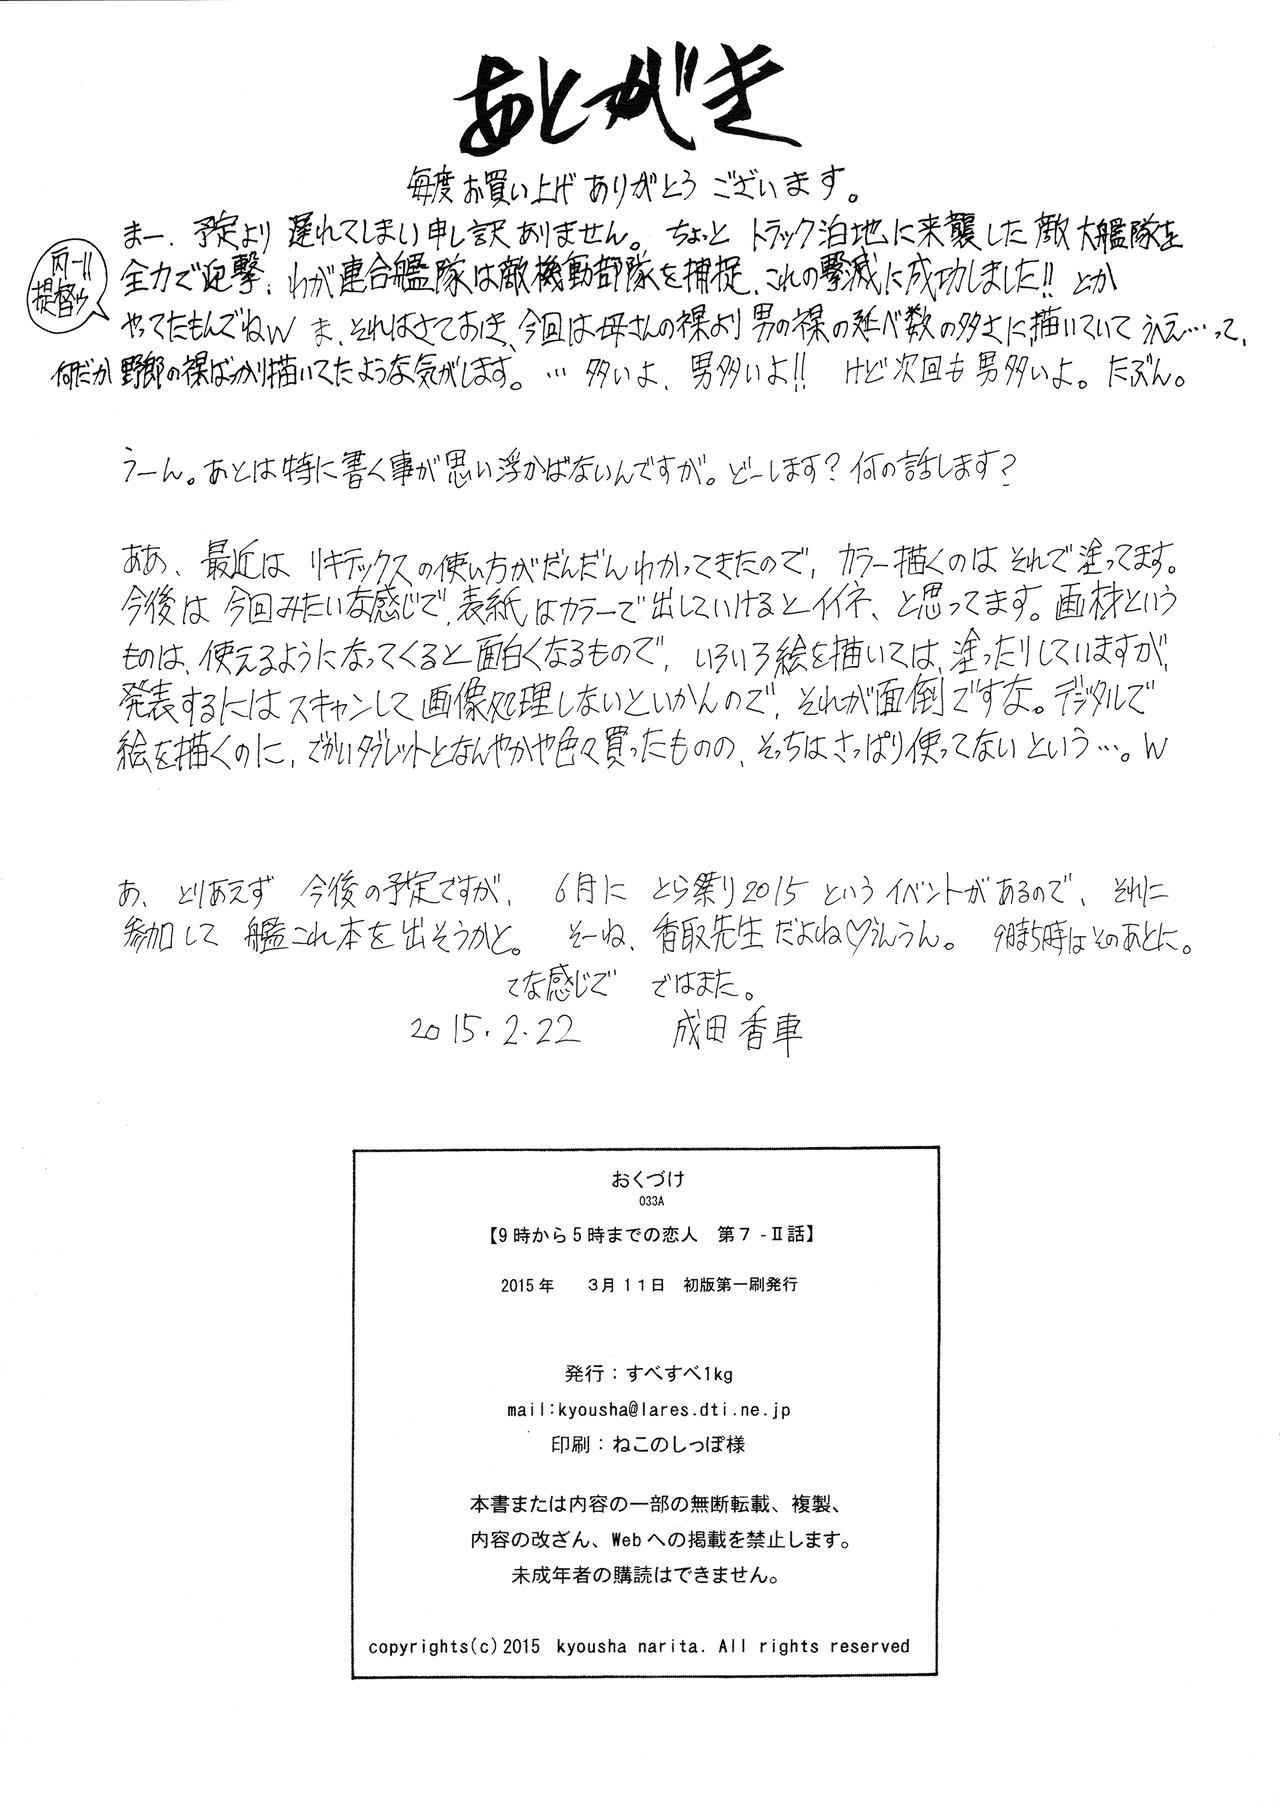 あとがき
毎度お買い上げありがとうございます。
まー、予定より遅れてしまい申し訳ありません。ちょっとトラック泊地に来襲した敵大艦隊を
丙ー!!
提督ゥ
全力で迎撃；わが連合艦隊は敵機動部隊を捕捉、これの撃滅に成功しました!!とか
やってたもんでねw ま、それはさておき、今回は母さんの裸より男の裸の延べ数の多さに、描いていてうへえ…って、
何だか野郎の裸ばっかり描いてたような気がします。…多いよ、男多いよ!! けど次回も男多いよ。たぶん。
うーん。あとは特に書く事が思い浮かばないんですが。どーします?何の話します?
ああ、最近はリキテックスの使い方がだんだんわかってきたので、カラー描くのはそれで塗ってます。
今後は今回みたいな感じで、表紙はカラーで出していけるとイイネ、と思ってます。画材という
ものは、使えるようになってくると面白くなるもので、いろいろ絵を描いては、塗ったりしていますが、
発表するにはスキャンして画像処理しないといかんので、それが面倒ですな。デジタルで
絵を描くのに、でかいタブレットとなんやかや色々買ったものの、そっちはさっぱり使ってないという…。w
あ、とりあえず 今後の予定ですが、 6月に とら祭り2015 というイベントがあるので、それに
参加して 艦これ本を出そうかと。 そーね、香取先生だよね♡うんうん。 9時5時はそのあとに。
てな感じで ではまた。
2015.2.22 成田香車
おくづけ
033A
【9時から5時までの恋人 第7-Ⅱ話】
2015年 3月11日 初版第一刷発行
発行：すべすべ1kg
mail:kyousha@lares.dti.ne.jp
印刷：ねこのしっぽ様
本書または内容の一部の無断転載、複製、
内容の改ざん、Webへの掲載を禁止します。
未成年者の購読はできません。
copyrights(c)2015 kyousha narita. All rights reserved